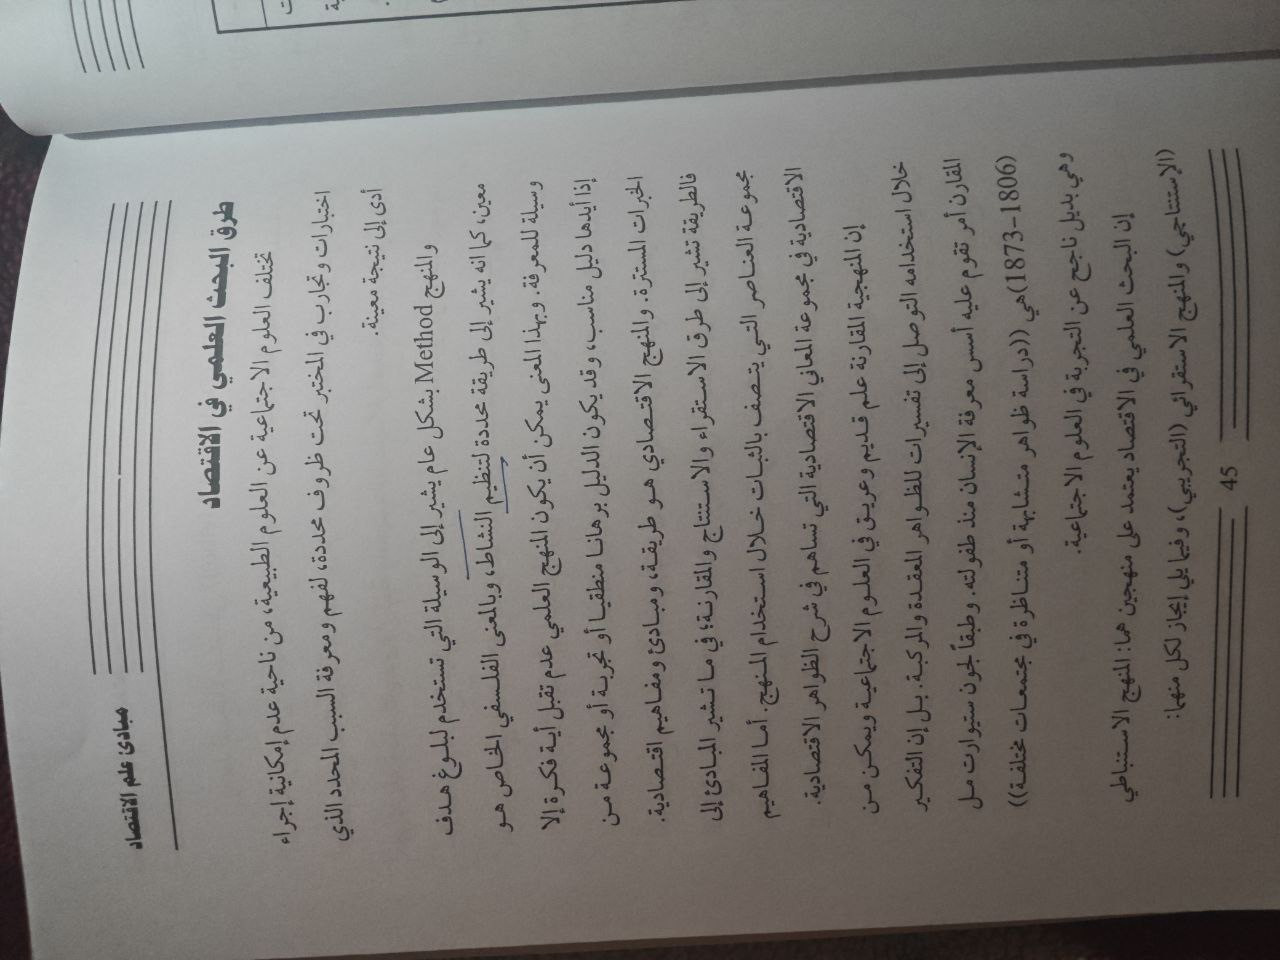 مبادئ علم الاقتصاد
طرق البحث العلمي في الاقتصاد
تختلف العلوم الاجتماعية عن العلوم الطبيعية، من ناحية عدم إمكانية إجراء
اختبارات وتجارب في المختبر تحت ظروف محددة، لفهم ومعرفة السبب المحدد الذي
أدى إلى نتيجة معينة.
والمنهج Method بشكل عام يشير إلى الوسيلة التي تستخدم لبلوغ هدف
معين، كما انه يشير إلى طريقة محددة لتنظيم النشاط، وبالمعنى الفلسفي الخاص هو
وسيلة للمعرفة. وبهذا المعنى يمكن أن يكون المنهج العلمي عدم تقبل أية فكرة إلا
إذا أيدها دليل مناسب، وقد يكون الدليل برهانا منطقيا أو تجربة أو مجموعة من
الخبرات المستترة. والمنهج الاقتصادي هو طريقة، ومبادئ ومفاهيم اقتصادية.
فالطريقة تشير إلى طرق الاستقراء والاستنتاج والمقارنة؛ في ما تشير المبادئ إلى
مجموعة العناصر التي يتصف بالثبات خلال استخدام المنهج. أما المفاهيم
الاقتصادية في مجموعة المعاني الاقتصادية التي تساهم في شرح الظواهر الاقتصادية.
إن المنهجية المقارنة علم قديم وعريق في العلوم الاجتماعية ويمكن من
خلال استخدامه التوصل إلى تفسيرات للظواهر المعقدة والمركبة. بل إن التفكير
المقارن أمر تقوم عليه أسس معرفة الإنسان منذ طفولته. وطبقاً لجون ستيوارت مل
(1806-1873)هي ((دراسة ظواهر متشابهة أو متناظرة في مجتمعات مختلفة))
وهي بديل ناجح عن التجربة في العلوم الاجتماعية.
إن البحث العلمي في الاقتصاد يعتمد على منهجين هما: المنهج الاستنباطي
(الإستنتاجي) والمنهج الاستقرائي (التجريبي)، وفيما يلي إيجاز لكل منهما:
45